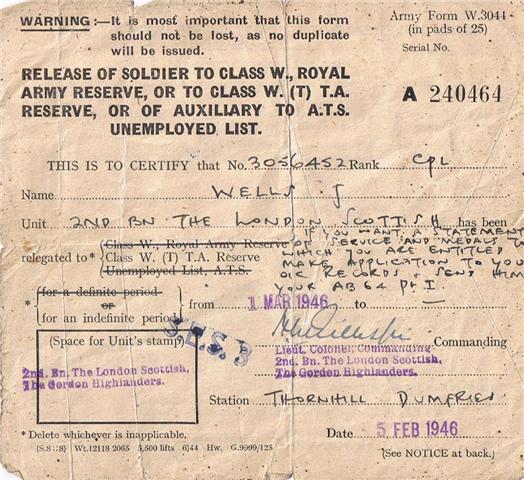 WARNING :—It is most important that this form
should not be lost, as no duplicate
will be issued.
Army Form W.3044
(in pads of 25)
Serial No.
RELEASE OF SOLDIER TO CLASS W., ROYAL
ARMY RESERVE, OR TO CLASS W. (T) T.A.
RESERVE, OR OF AUXILIARY TO A.T.S.
UNEMPLOYED LIST.
A 240464
THIS IS TO CERTIFY that No. 3056452 Rank CPL
Name WELLS J
Unit 2ND BN THE LONDON SCOTTISH has been
relegated to*
Class W., Royal Army Reserve
Class W. (T) T.A. Reserve
Unemployed List, A.T.S.
IF YOU WANT A STATEMENT
OF SERVICE AND MEDALS TO
WHICH YOU ARE ENTITLED
MAKE APPLICATION TO YOU
O i/c RECORDS & SEND HIM
YOUR AB 64 Pt I.
* for a definite period
or
for an indefinite period
from 1 MAR 1946 to
(Space for Unit's stamp)
S.E.S. B
2nd. Bn, The London Scottish,
The Gordon Highlanders.
Commanding
Lieut. Colonel, Commanding
2nd. Bn. The London Scottish,
The Gordon Highlanders.
Station THORNHILL DUMFRIES
* Delete whichever is inapplicable.
Date 5 FEB 1946
(S.8 8) Wt.12118 2065 5,500 lifts 6/44 Hw. G.9999/125
(See NOTICE at back.)